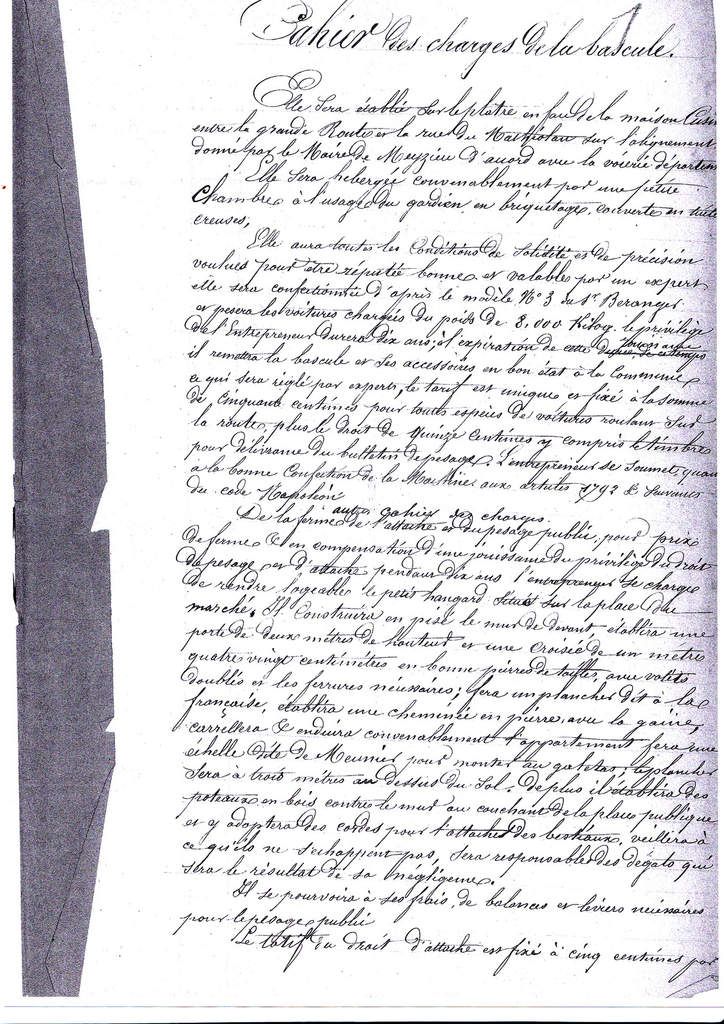 1
Cahier des charges de la bascule.
Elle sera établie sur le platre en face de la maison
entre la grande Route et la rue du sur l'alignement
donné par le Maire de Meyzieu d'accord avec la voierie
Elle sera hebergée convenablement par une petite
Chambre à l'usage du gardien en briquetage, couverte en
creuses,
Elle aura toutes les Conditions de Solidité et de précision
voulues pour être réputée bonne et valable par un expert
elle sera confectionnée d'après le modèle N° 3 du Sr Beranger
et pesera les voitures chargées du poids de 8,000 Kilog. le privilège
de l'Entrepreneur durera dix ans; à l'expiration de
il remettra la bascule et ses accessoires en bon état à la Commune
ce qui sera réglé par experts, le tarif est unique et fixé à la somme
de Cinquante centimes pour toutes espèces de voitures roulant sur
la route, plus le droit de quinze centimes y compris le timbre
pour délivrance du bulletin de pesage. L'entrepreneur se soumet, quant
à la bonne Confection de la Machine aux articles 1792 & Suivants
du code Napoléon
autre cahier des charges.
De la ferme de l'attache et du pesage public, pour prix
de ferme & en compensation d'une jouissance du privilège du droit
de pesage et d'attache pendant dix ans l'entrepreneur se charge
de rendre logeable le petit hangard situé sur la place du
marché. Il Construira en pisé le mur de devant établira une
porte de deux mètres de hauteur et une croisée de un mètre
quatre vingt centimètres en bonne pierre de taille, avec volets
doublés et les ferrures nécessaires; fera un plancher dit à la
française, établira une cheminée en pierre avec la gaine,
carrellera & enduira convenablement l'appartement fera une
echelle dite de Meunier pour monter au galetas; le plancher
sera à trois mètres au dessus du sol. De plus il établira des
poteaux en bois contre le mur au couchant de la place publique
et y adoptera des cordes pour l'attache des bestiaux, veillera à
ce qu'ils ne s'echappent pas, sera responsable des dégats qui
sera le résultat de sa négligence.
Il se pourvoira à ses frais, de balances et leviers nécessaires
pour le pesage public
Le tarif du droit d'attache est fixé à cinq centimes par